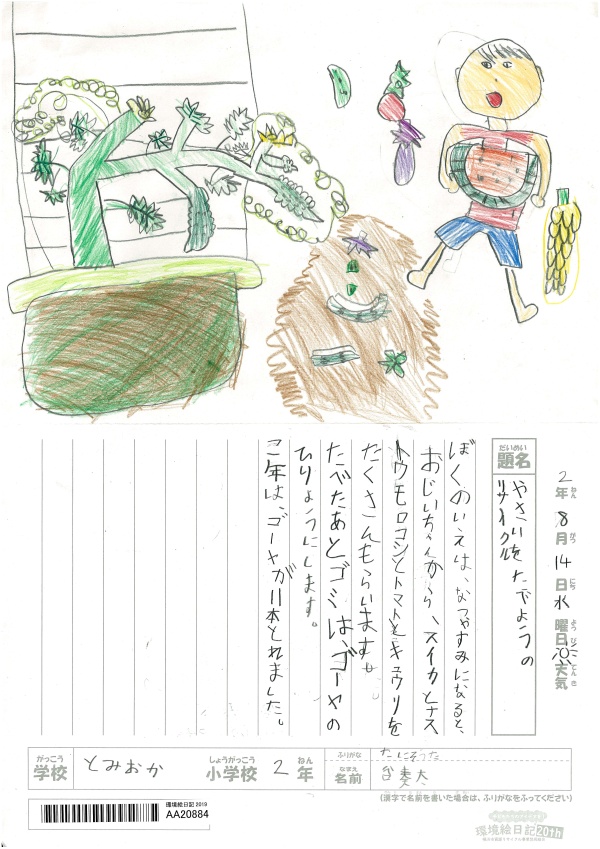 2年8月14日水曜日天気
ねん がつ にち ようび てんき
だいめい
題名
やさいをたべようの
リサイクル
ぼくのいえは、なつやすみになると、
おじいちゃんから、スイカとナス
トウモロコシとトマトとキュウリを
たくさんもらいます。
たべたあとゴミは、ゴーヤの
ひりょうにします。
こ年は、ゴーヤが11本とれました。
がっこう
学校
とみおか
しょうがっこう
小学校
2
ねん
年
ふりがな
なまえ
名前
たにそうた
奏太
(漢字で名前を書いた場合は、ふりがなをふってください)
環境絵日記 2019
AA20884
環境絵日記 20th